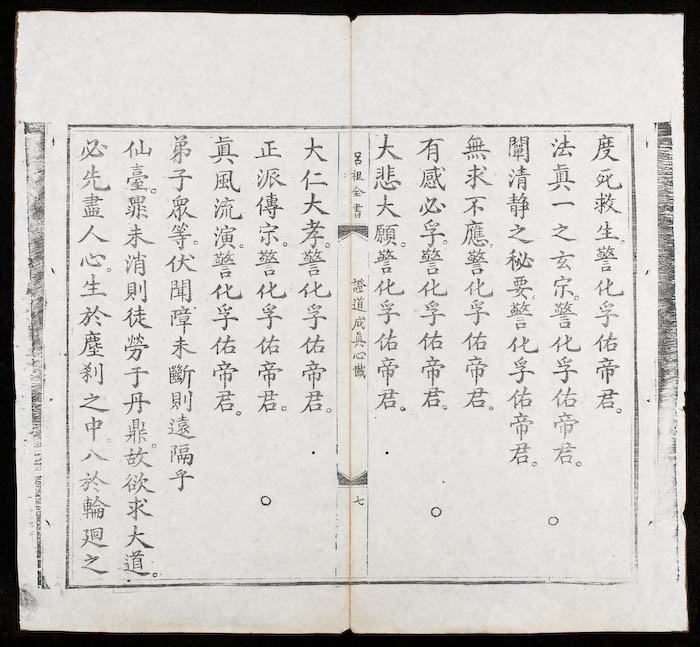 度死救生。警化孚佑帝君。
法真一之玄宗。警化孚佑帝君。
闡清靜之秘要。警化孚佑帝君。
無求不應。警化孚佑帝君。
有感必孚。警化孚佑帝君。
大悲大願。警化孚佑帝君。
呂祖全書
證道成眞心懺
七
大仁大孝。警化孚佑帝君。
正派傳宗。警化孚佑帝君。
眞風流演。警化孚佑帝君。
弟子眾等。伏聞障未斷則遠隔乎
仙臺。罪未消則徒勞于丹鼎。故欲求大道。
必先盡人心。生於塵剎之中。八於輪廻之